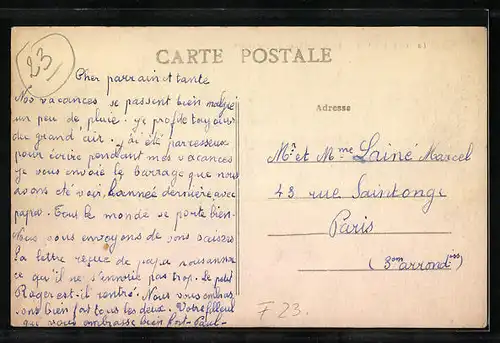 23
CARTE POSTALE
Cher parrain et tante
Nos vacances se passent bien malgré
un peu de pluie. je profite toujours
du grand air. j'ai été parresseux
pour écrire pendant mes vacances
je vous envoie le barrage que nous
avons été voir l'année dernière avec
papa. Tout le monde se porte bien.
Nous vous envoyons de bons baisers
la lettre reçue de papa nous annonce
ce qu'il ne s'ennuie pas trop. Le petit
Roger est-il rentré. Nous vous embras
ons bien fort tous les deux. Votre filleul
que vous embrasse bien fort - Paul -
Adresse
Mr et Mme Lainé Marcel
43 rue Saintonge
Paris
(3om arrondiss)
F 23.